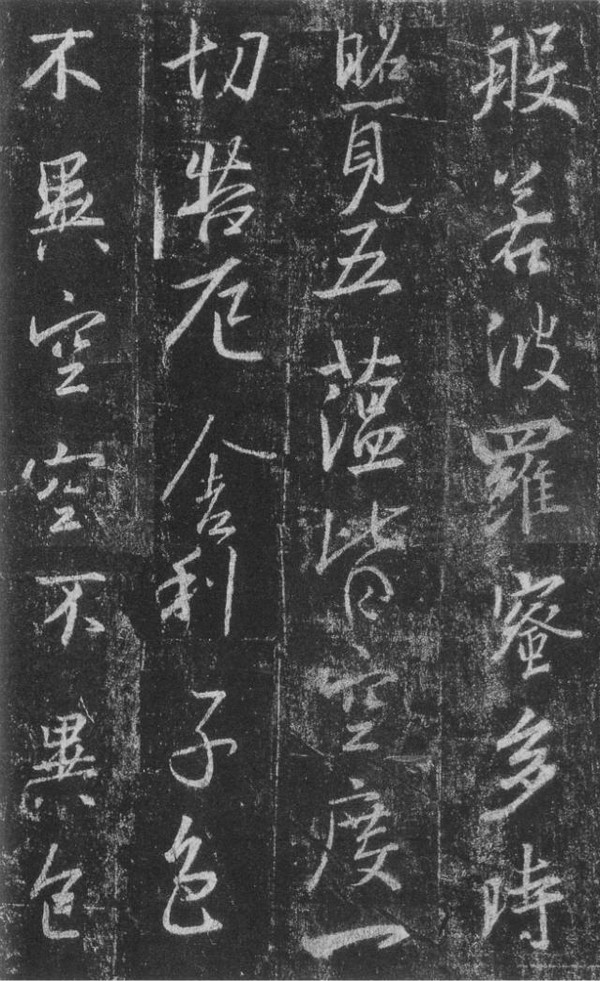 般若波羅蜜多時
照見五蘊皆空度一
切苦厄舍利子色
不異空空不異色